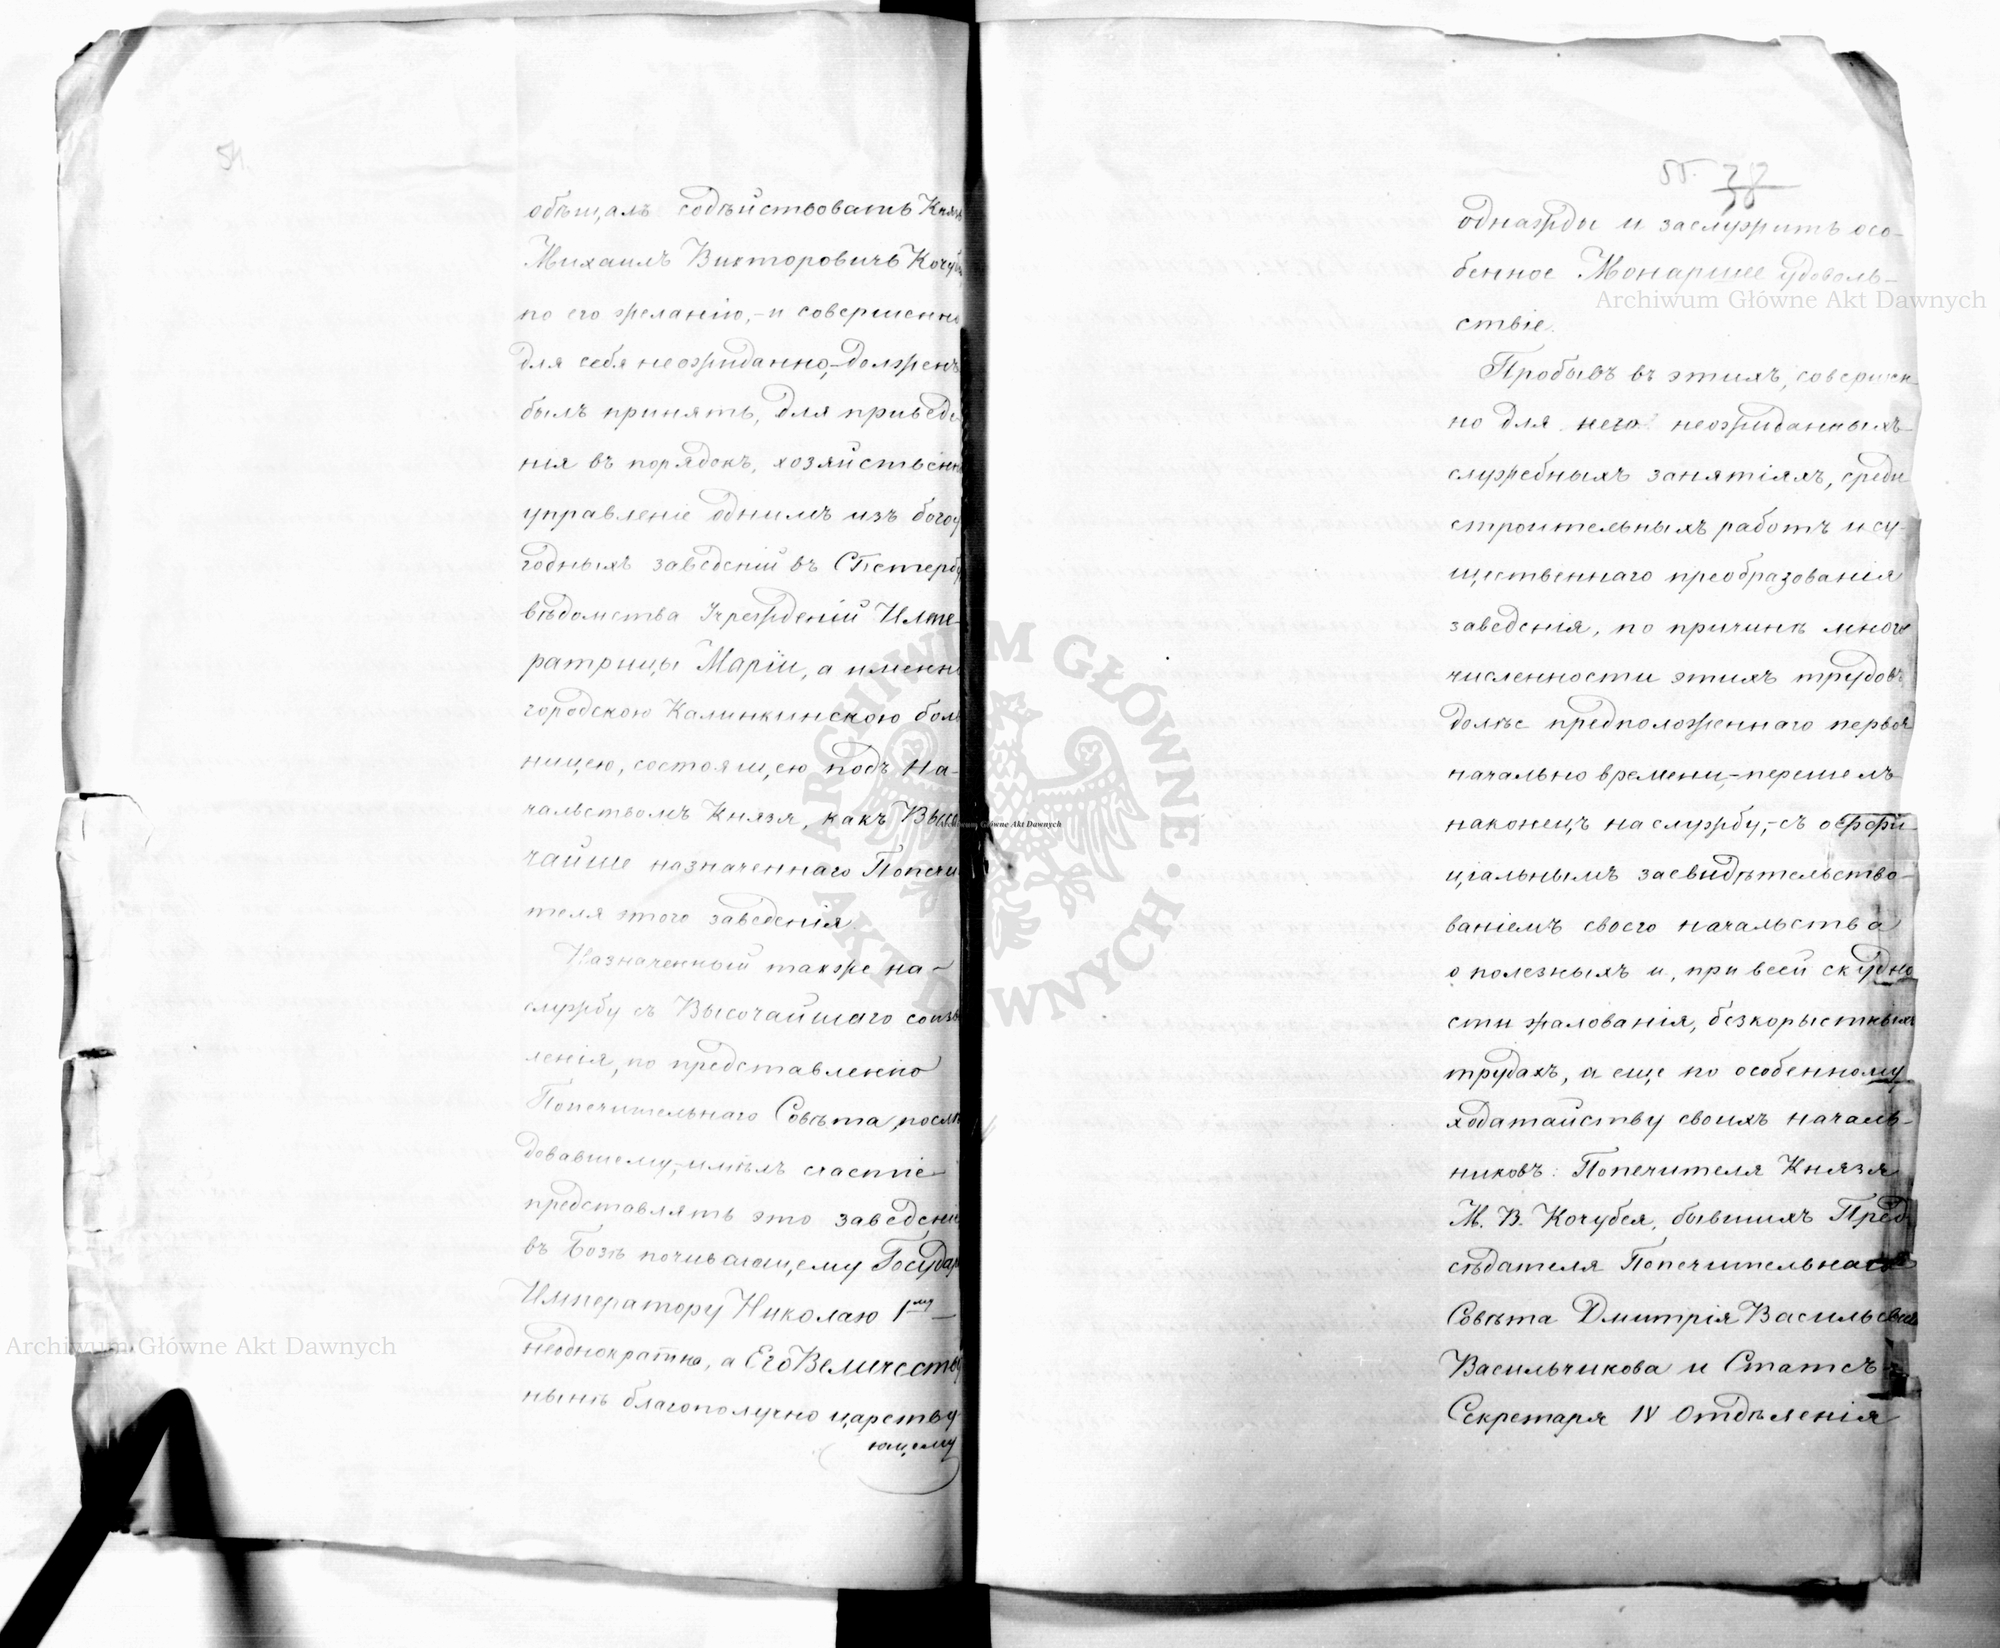 54.
обѣщалъ содѣйствовать Князь
Михаилъ Викторовичъ Кочубей
по его желанію,-и совершенно
для себя неожиданно,-долженъ
былъ принять, для приведе-
нія въ порядокъ, хозяйственное
управленіе однимъ изъ богоу-
годныхъ заведеній въ СПетербу
вѣдомства Учрежденій Импе-
ратрицы Маріи, а именно
городскою Калинкинскою боль
ницею, состоящею подъ На-
чальствомъ Князя, какъ Высо
чайше назначеннаго Попечи
теля этого заведенія.
Назначенный также на-
службу съ Высочайшаго соизво
ленія, по представленію
Попечительнаго Совѣта, послѣ
довавшему,-имѣлъ счастіе
представлять это заведеніе
въ Бозѣ почивающему Государ
Императору Николаю 1му
неоднократно, а Его Величеству
нынѣ благополучно царству
ющему
55. 38
однажды и заслужить осо-
бенное Монаршее удоволь-
ствіе.
Пробывъ въ этихъ, совершен
но для него неожиданныхъ
служебныхъ занятіяхъ, среди
строительныхъ работъ и су-
щественнаго преобразованія
заведенія, по причинѣ много
численности этихъ трудовъ
долѣе предположеннаго перво
начально времени,-перешелъ
наконецъ на службу,-съ оффи
ціальнымъ засвидѣтельство-
ваніемъ своего начальства
о полезныхъ и, при всей скудно
сти жалованія, безкорыстныхъ
трудахъ, а еще по особенному
ходатайству своихъ началь-
никовъ: Попечителя Князя
М. В. Кочубея, бывшихъ Пред
сѣдателя Попечительнаго
Совѣта Дмитрія Васильевича
Васильчикова и Статсъ-
Секретаря IV Отдѣленія
Archiwum Główne Akt Dawnych
Archiwum Główne Akt Dawnych
Archiwum Główne Akt Dawnych
ARCHIWUM GŁÓWNE AKT DAWNYCH